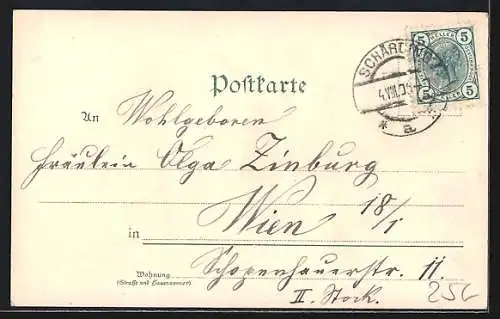 5 HELLER 5
SCHÄRDING
Postkarte
4.VIII.05
5 5
* a
An Wohlgeboren
Fräulein Olga Zinburg
in Wien 18/1
Wohnung Schopenhauerstr. 11.
(Straße und Hausnummer)
II. Stock.
25L